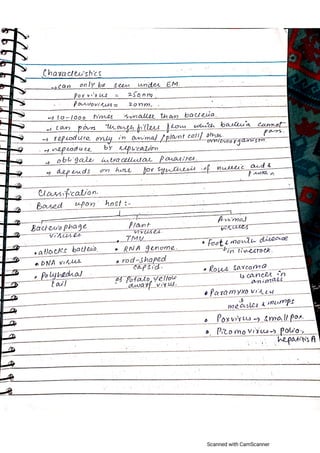 Characteristics
→ can only be seen under EM.
Poxvirus = 250nm.
Parvovirus = 20nm.
→ 10-1000 times smaller than bacteria.
→ can pass through filters from which bacteria cannot pass.
→ reproduce only in animal / plant cell / other microorganism
→ reproduce by replication
→ obligate intracellular Parasites.
→ depends on host for synthesis of nucleic acid &
Classification
Based upon host:-
Bacteriophage viruses
• attacks bacteria
• DNA virus
• Polyhedral tail
Plant viruses
• TMV
• RNA genome
• rod-shaped capsid.
eg Potato yellow dwarf virus.
Animal viruses
• Foot & mouth disease in livestock.
• Rous Sarcoma
↳ cancer in animals
• Paramyxovirus
↳ measles & mumps
• Poxvirus → smallpox
• Picornovirus → polio, hepatitis A
Scanned with CamScanner